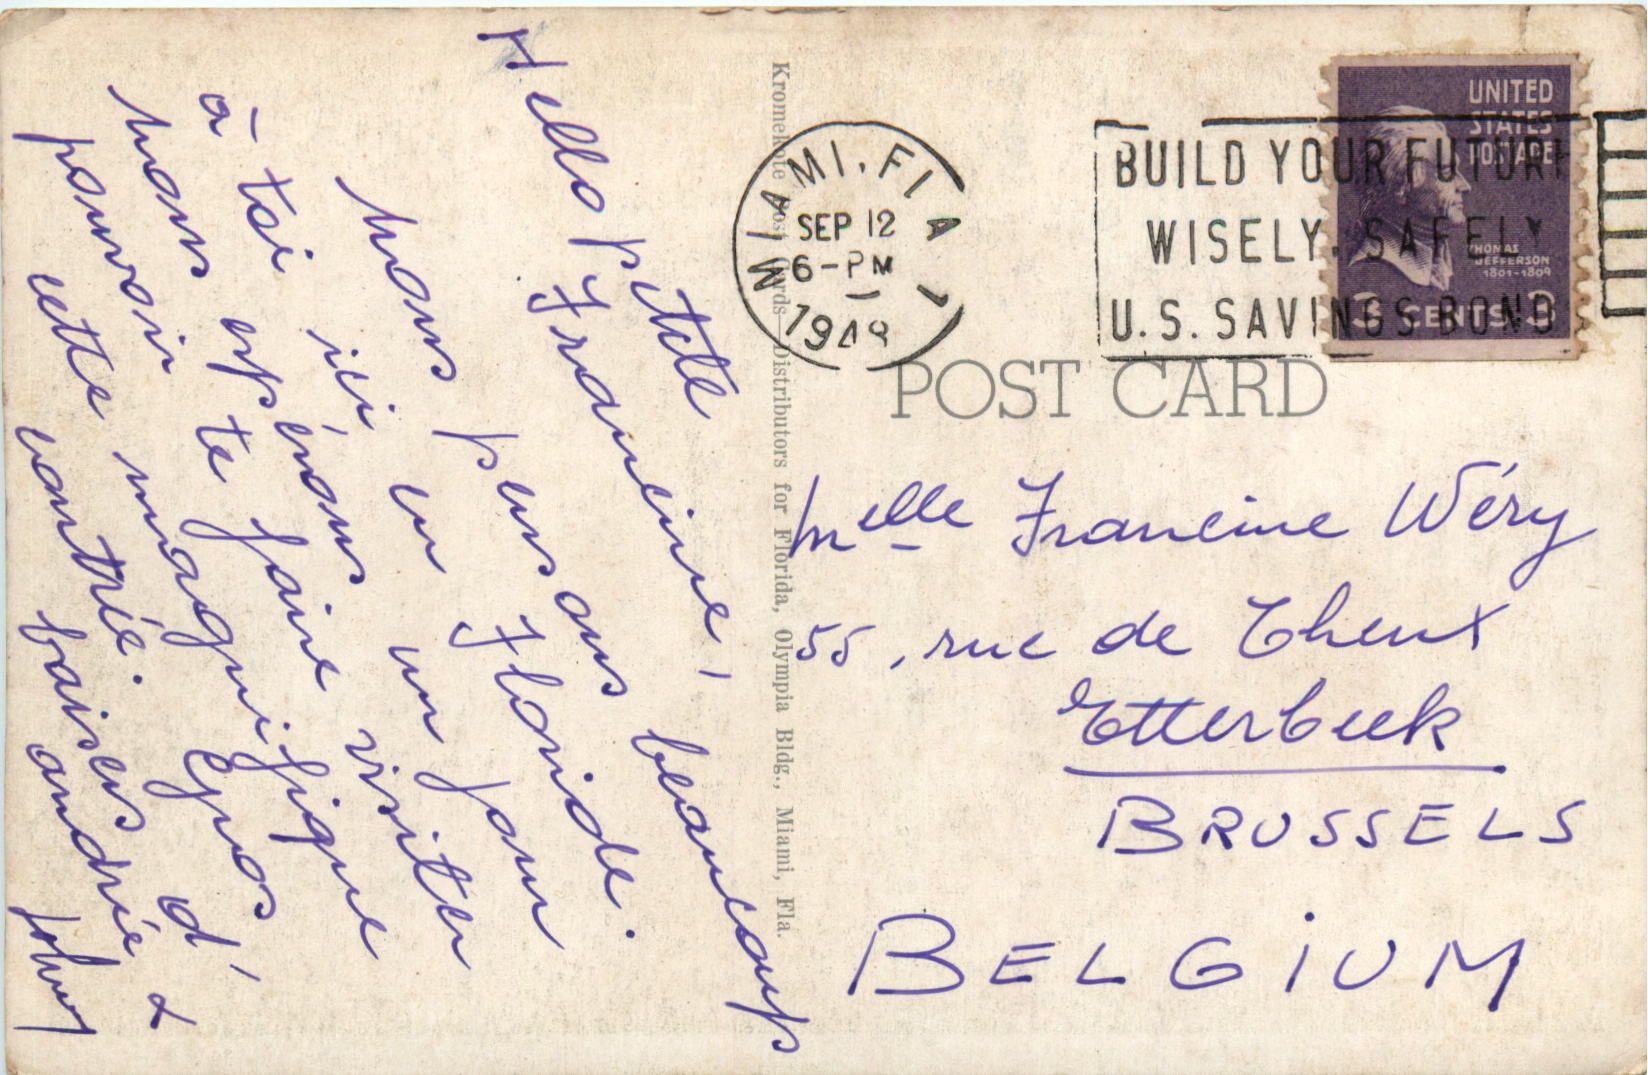 Hello petite Francine!
Nous pensons beaucoup
à toi ici en Floride.
Nous espérons un jour
pouvoir te faire visiter
cette magnifique
contrée. Gros
baisers d'
andrée &
Johnny
Kromekote Post Cards—Distributors for Florida, Olympia Bldg., Miami, Fla.
MIAMI, FLA
1
SEP 12
6-PM
1948
BUILD YOUR FUTURE
WISELY, SAFELY
U.S. SAVINGS BOND
UNITED
STATES
POSTAGE
THOMAS
JEFFERSON
1801-1809
3 CENTS 3
POST CARD
Melle Francine Wéry
55, rue de Theux
Etterbeek
BRUSSELS
BELGIUM